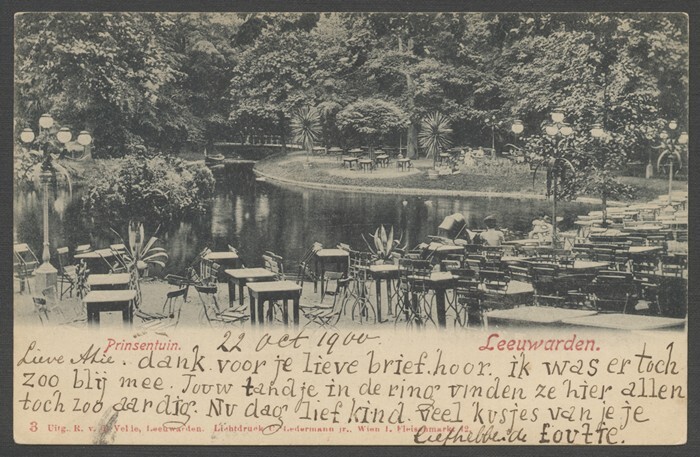 Prinsentuin. 22 oct 1900 Leeuwarden.
Lieve Akie. dank voor je lieve brief hoor. ik was er toch
zoo blij mee. Jouw tandje in de ring vinden ze hier allen
toch zoo aardig. Nu dag lief kind. veel kusjes van je je
3 Uitg. R. v. d. Velde, Leeuwarden. Lichtdruck C. Ledermann jr., Wien I. Fleischmarkt 12.
liefhebbende